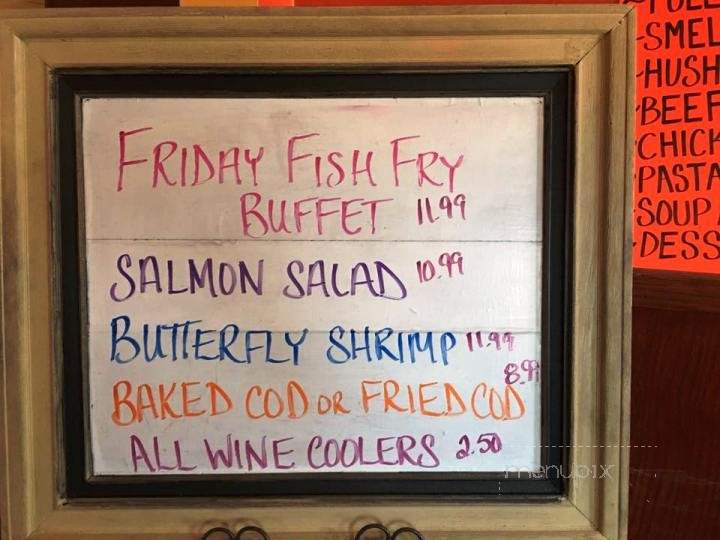 FRIDAY FISH FRY
BUFFET 11.99
SALMON SALAD 10.99
BUTTERFLY SHRIMP 11.99
8.99
BAKED COD OR FRIED COD
ALL WINE COOLERS 2.50
menupix
-SMEL
-HUSH
-BEEF
-CHICK
-PASTA
-SOUP
-DESS